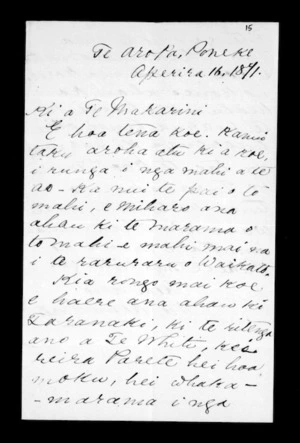 15
Te Aro Pa, Poneke
Aperira 16, 1871.
Ki a Te Makarini
E hoa tena koe. Ka nui
taku aroha atu ki a koe,
i runga i nga mahi a te
ao - Ka nui te pai o to
mahi, e miharo ana
ahau ki te marama o
to mahi - e mahi mai na
i te raruraru o Waikato.
Kia rongo mai koe
e haere ana ahau ki
Taranaki, ki te ritenga
ano a Te Whiti, kei
reira Parete hei hoa
moku, hei whaka-
-marama i nga